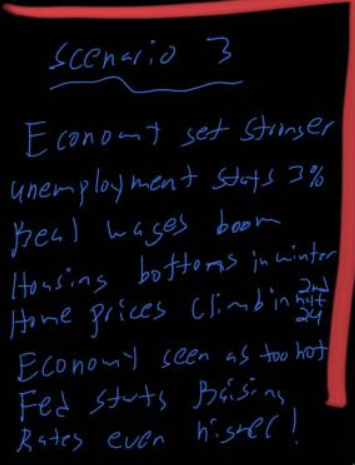 Scenario 3
Economy get stronger
unemployment stays 3%
Real wages boom
Housing bottoms in winter
Home prices climb in 2nd half 24
Economy seen as too hot
Fed starts Raising
Rates even higher!